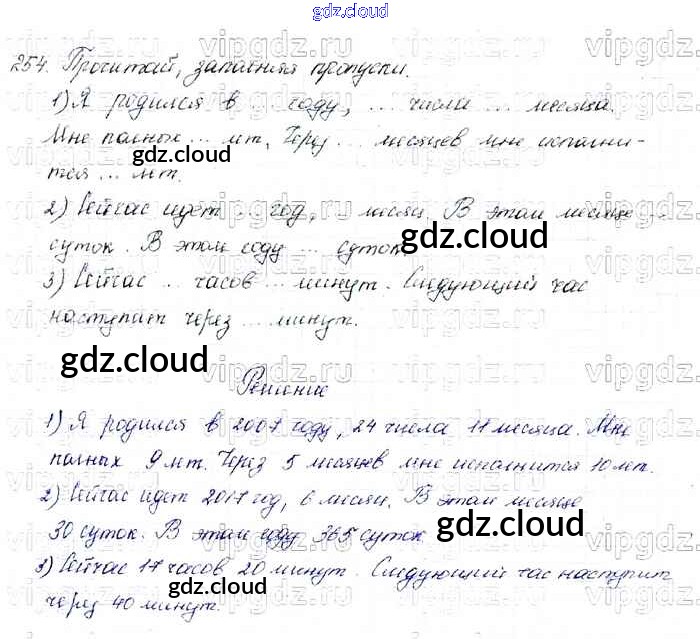 gdz.cloud
254. Прочитай, заполняя пропуски.
1) Я родился в ... году, ... числа ... месяца.
Мне полных ... лет. Через ... месяцев мне исполни-
тся ... лет.
2) Сейчас идет ... год, ... месяц. В этом месяце ...
суток. В этом году ... суток.
3) Сейчас ... часов ... минут. Следующий час
наступает через ... минут.
Решение
1) Я родился в 2007 году, 24 числа 11 месяца. Мне
полных 9 лет. Через 5 месяцев мне исполнится 10 лет.
2) Сейчас идет 2017 год, 6 месяц. В этом месяце
30 суток. В этом году 365 суток
3) Сейчас 17 часов 20 минут. Следующий час наступит
через 40 минут.
gdz.cloud
gdz.cloud
gdz.cloud
gdz.cloud
gdz.cloud
vipgdz.ru